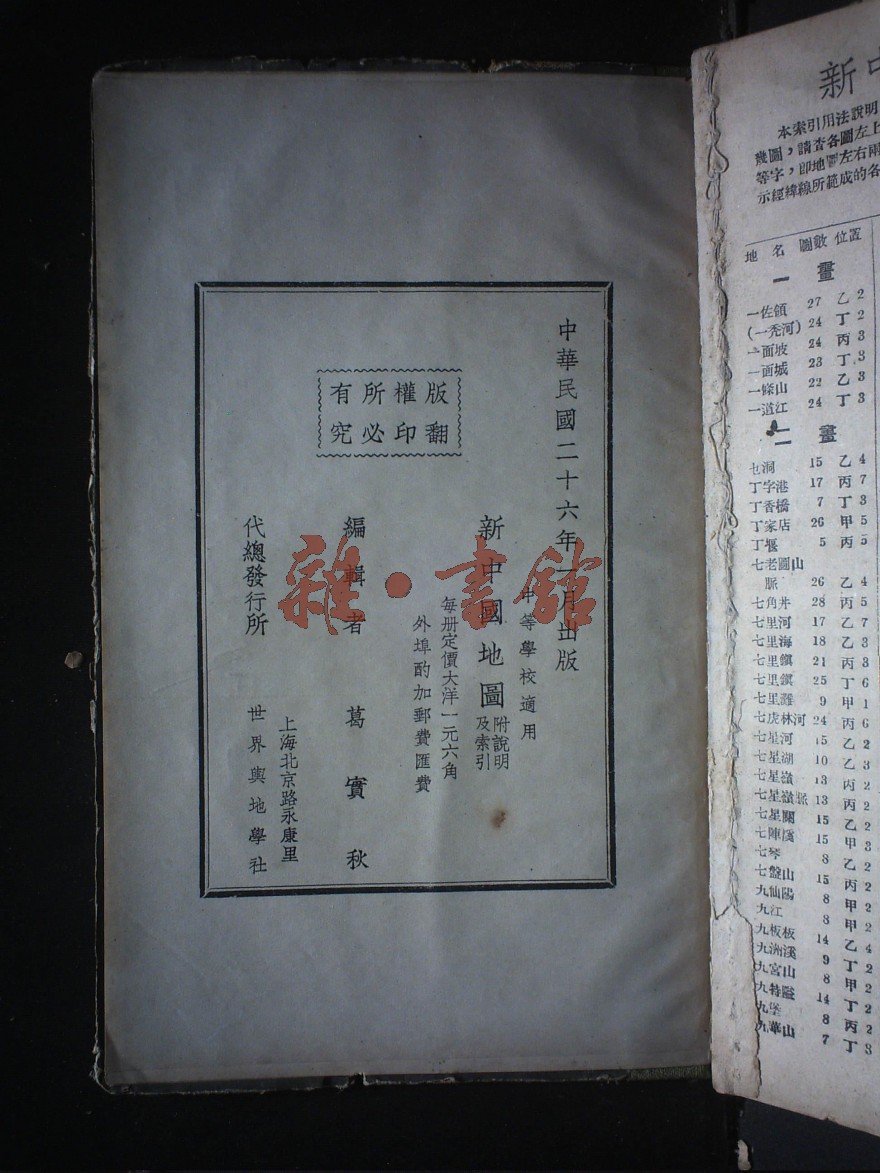 中華民國二十六年一月出版
中等學校適用
新中國地圖
附說明
及索引
每册定價大洋一元六角
外埠酌加郵費匯費
版權所有
翻印必究
編輯者 葛寶秋
代總發行所
上海北京路永康里
世界輿地學社
雜·書舘
新中
本索引用法說明
幾圖，請查各圖左上
等字，即地圖左右兩
示經緯線所範成的各
地 名 圖數 位置
一 畫
一佐領 27 乙 2
(一禿河) 24 丁 2
一面坡 24 丙 3
一面城 23 丁 3
一條山 22 乙 3
一道江 24 丁 3
二 畫
乜洞 15 乙 4
丁字港 17 丙 7
丁香橋 7 丁 3
丁家店 26 甲 5
丁堰 5 丙 5
七老圖山
脈 26 乙 4
七角井 28 丙 5
七里河 17 乙 7
七里海 18 乙 3
七里鎭 21 丙 3
七里鎭 25 丁 6
七里灘 9 甲 1
七虎林河 24 丙 6
七星河 15 乙 2
七星湖 10 乙 3
七星嶺 13 丙 2
七星嶺脈 13 丙 2
七星關 15 乙 2
七陣溪 15 甲 3
七琴 8 乙 2
七盤山 15 丙 2
九仙陽 8 甲 2
九江 8 甲 2
九板板 14 乙 4
九洲溪 9 丁 2
九宮山 8 甲 2
九特隘 14 丁 2
九堡 8 丙 2
九華山 7 丁 3